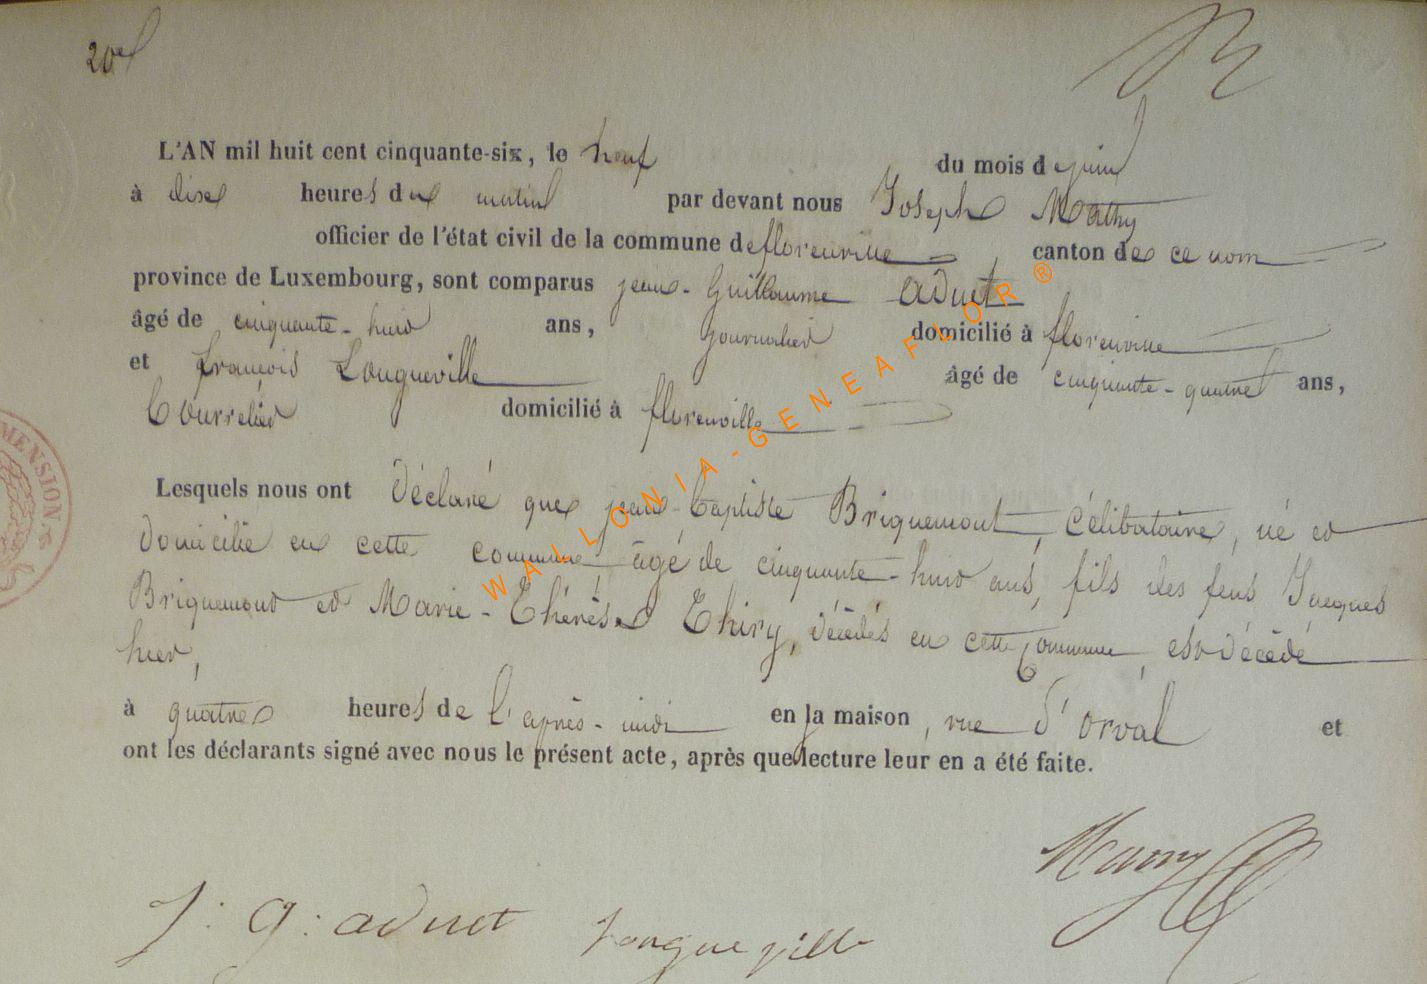 20e
L'AN mil huit cent cinquante-six, le neuf du mois de juin
à dix heures du matin par devant nous Joseph Mathy
officier de l'état civil de la commune de florenville canton de ce nom
province de Luxembourg, sont comparus jean-Guillaume aduet
âgé de cinquante-huit ans, journalier domicilié à florenville
et françois Longueville âgé de cinquante-quatre ans,
Bourrelier domicilié à florenville
Lesquels nous ont déclaré que jean-baptiste Briquemont, célibataire, né et
domicilié en cette commune, âgé de cinquante-huit ans, fils des feus Jacques
Briquemont et Marie-Thérèse Thiry, décédés en cette commune, est décédé
hier,
à quatre heures de l'après-midi en la maison, rue d'orval et
ont les déclarants signé avec nous le présent acte, après que lecture leur en a été faite.
Mathy
J: G: aduet Longueville
WALLONIA-GENEAFLOR®
MENSION.